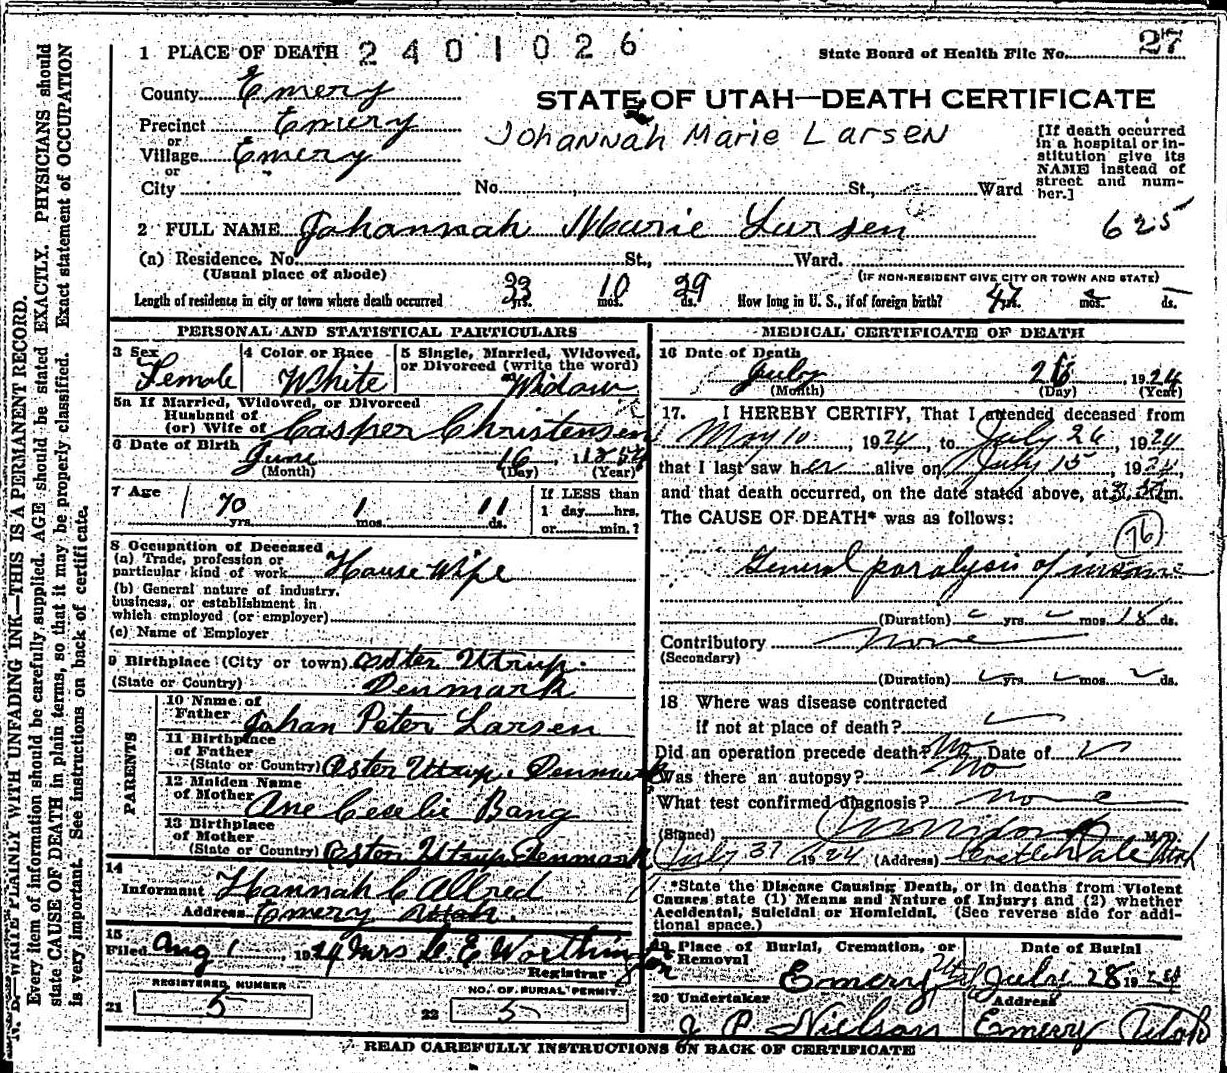 1 PLACE OF DEATH 2401026 State Board of Health File No. 27
County Emery
STATE OF UTAH—DEATH CERTIFICATE
Precinct Emery
or
Johannah Marie Larsen
Village Emery
or
City No. St., Ward
[If death occurred
in a hospital or in-
stitution give its
NAME instead of
street and num-
ber.]
2 FULL NAME Johannah Marie Larsen 625
(a) Residence. No. St., Ward.
(Usual place of abode) (IF NON-RESIDENT GIVE CITY OR TOWN AND STATE)
Length of residence in city or town where death occurred 33 yrs. 10 mos. 29 ds. How long in U. S., if of foreign birth? 47 yrs. mos. ds.
PERSONAL AND STATISTICAL PARTICULARS
3 Sex Female
4 Color or Race White
5 Single, Married, Widowed,
or Divorced (write the word)
Widow
5a If Married, Widowed, or Divorced
Husband of
(or) Wife of Casper Christensen
6 Date of Birth June 16, 1854
(Month) (Day) (Year)
7 Age 70 yrs. 1 mos. 11 ds.
If LESS than
1 day hrs.
or min.?
8 Occupation of Deceased
(a) Trade, profession or
particular kind of work House Wife
(b) General nature of industry,
business, or establishment in
which employed (or employer)
(c) Name of Employer
9 Birthplace (City or town) Oster Utrup.
(State or Country) Denmark
PARENTS
10 Name of
Father Johan Peter Larsen
11 Birthplace
of Father
(State or Country) Oster Utrup. Denmark
12 Maiden Name
of Mother Ane Ceselie Bang
13 Birthplace
of Mother
(State or Country) Oster Utrup Denmark
14
Informant Hannah C Allred
Address Emery Utah.
15
Filed Aug 1, 1924 Mrs D. E. Worthington
Registrar
21 REGISTERED NUMBER 5
22 NO. OF BURIAL PERMIT 5
MEDICAL CERTIFICATE OF DEATH
16 Date of Death
July 26 1924
(Month) (Day) (Year)
17. I HEREBY CERTIFY, That I attended deceased from
May 10, 1924, to July 26, 1924
that I last saw her alive on July 15, 1924,
and that death occurred, on the date stated above, at m.
The CAUSE OF DEATH* was as follows:
76
General paralysis of insane
(Duration) yrs mos. 18 ds.
Contributory none
(Secondary)
(Duration) yrs mos. ds.
18 Where was disease contracted
if not at place of death?
Did an operation precede death? No Date of
Was there an autopsy? No
What test confirmed diagnosis? none
(Signed) M.D.
July 31 1924 (Address) Castle Dale Utah
*State the Disease Causing Death, or in deaths from Violent
Causes state (1) Means and Nature of Injury; and (2) whether
Accidental, Suicidal or Homicidal. (See reverse side for addi-
tional space.)
19 Place of Burial, Cremation, or
Removal
Emery Utah
Date of Burial
July 28 1924
20 Undertaker
J P Nielson
Address
Emery Utah
READ CAREFULLY INSTRUCTIONS ON BACK OF CERTIFICATE
N. B.—WRITE PLAINLY WITH UNFADING INK—THIS IS A PERMANENT RECORD.
Every item of information should be carefully supplied. AGE should be stated EXACTLY. PHYSICIANS should
state CAUSE OF DEATH in plain terms, so that it may be properly classified. Exact statement of OCCUPATION
is very important. See instructions on back of certificate.